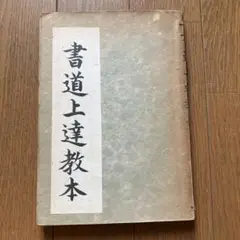 書道上達教本